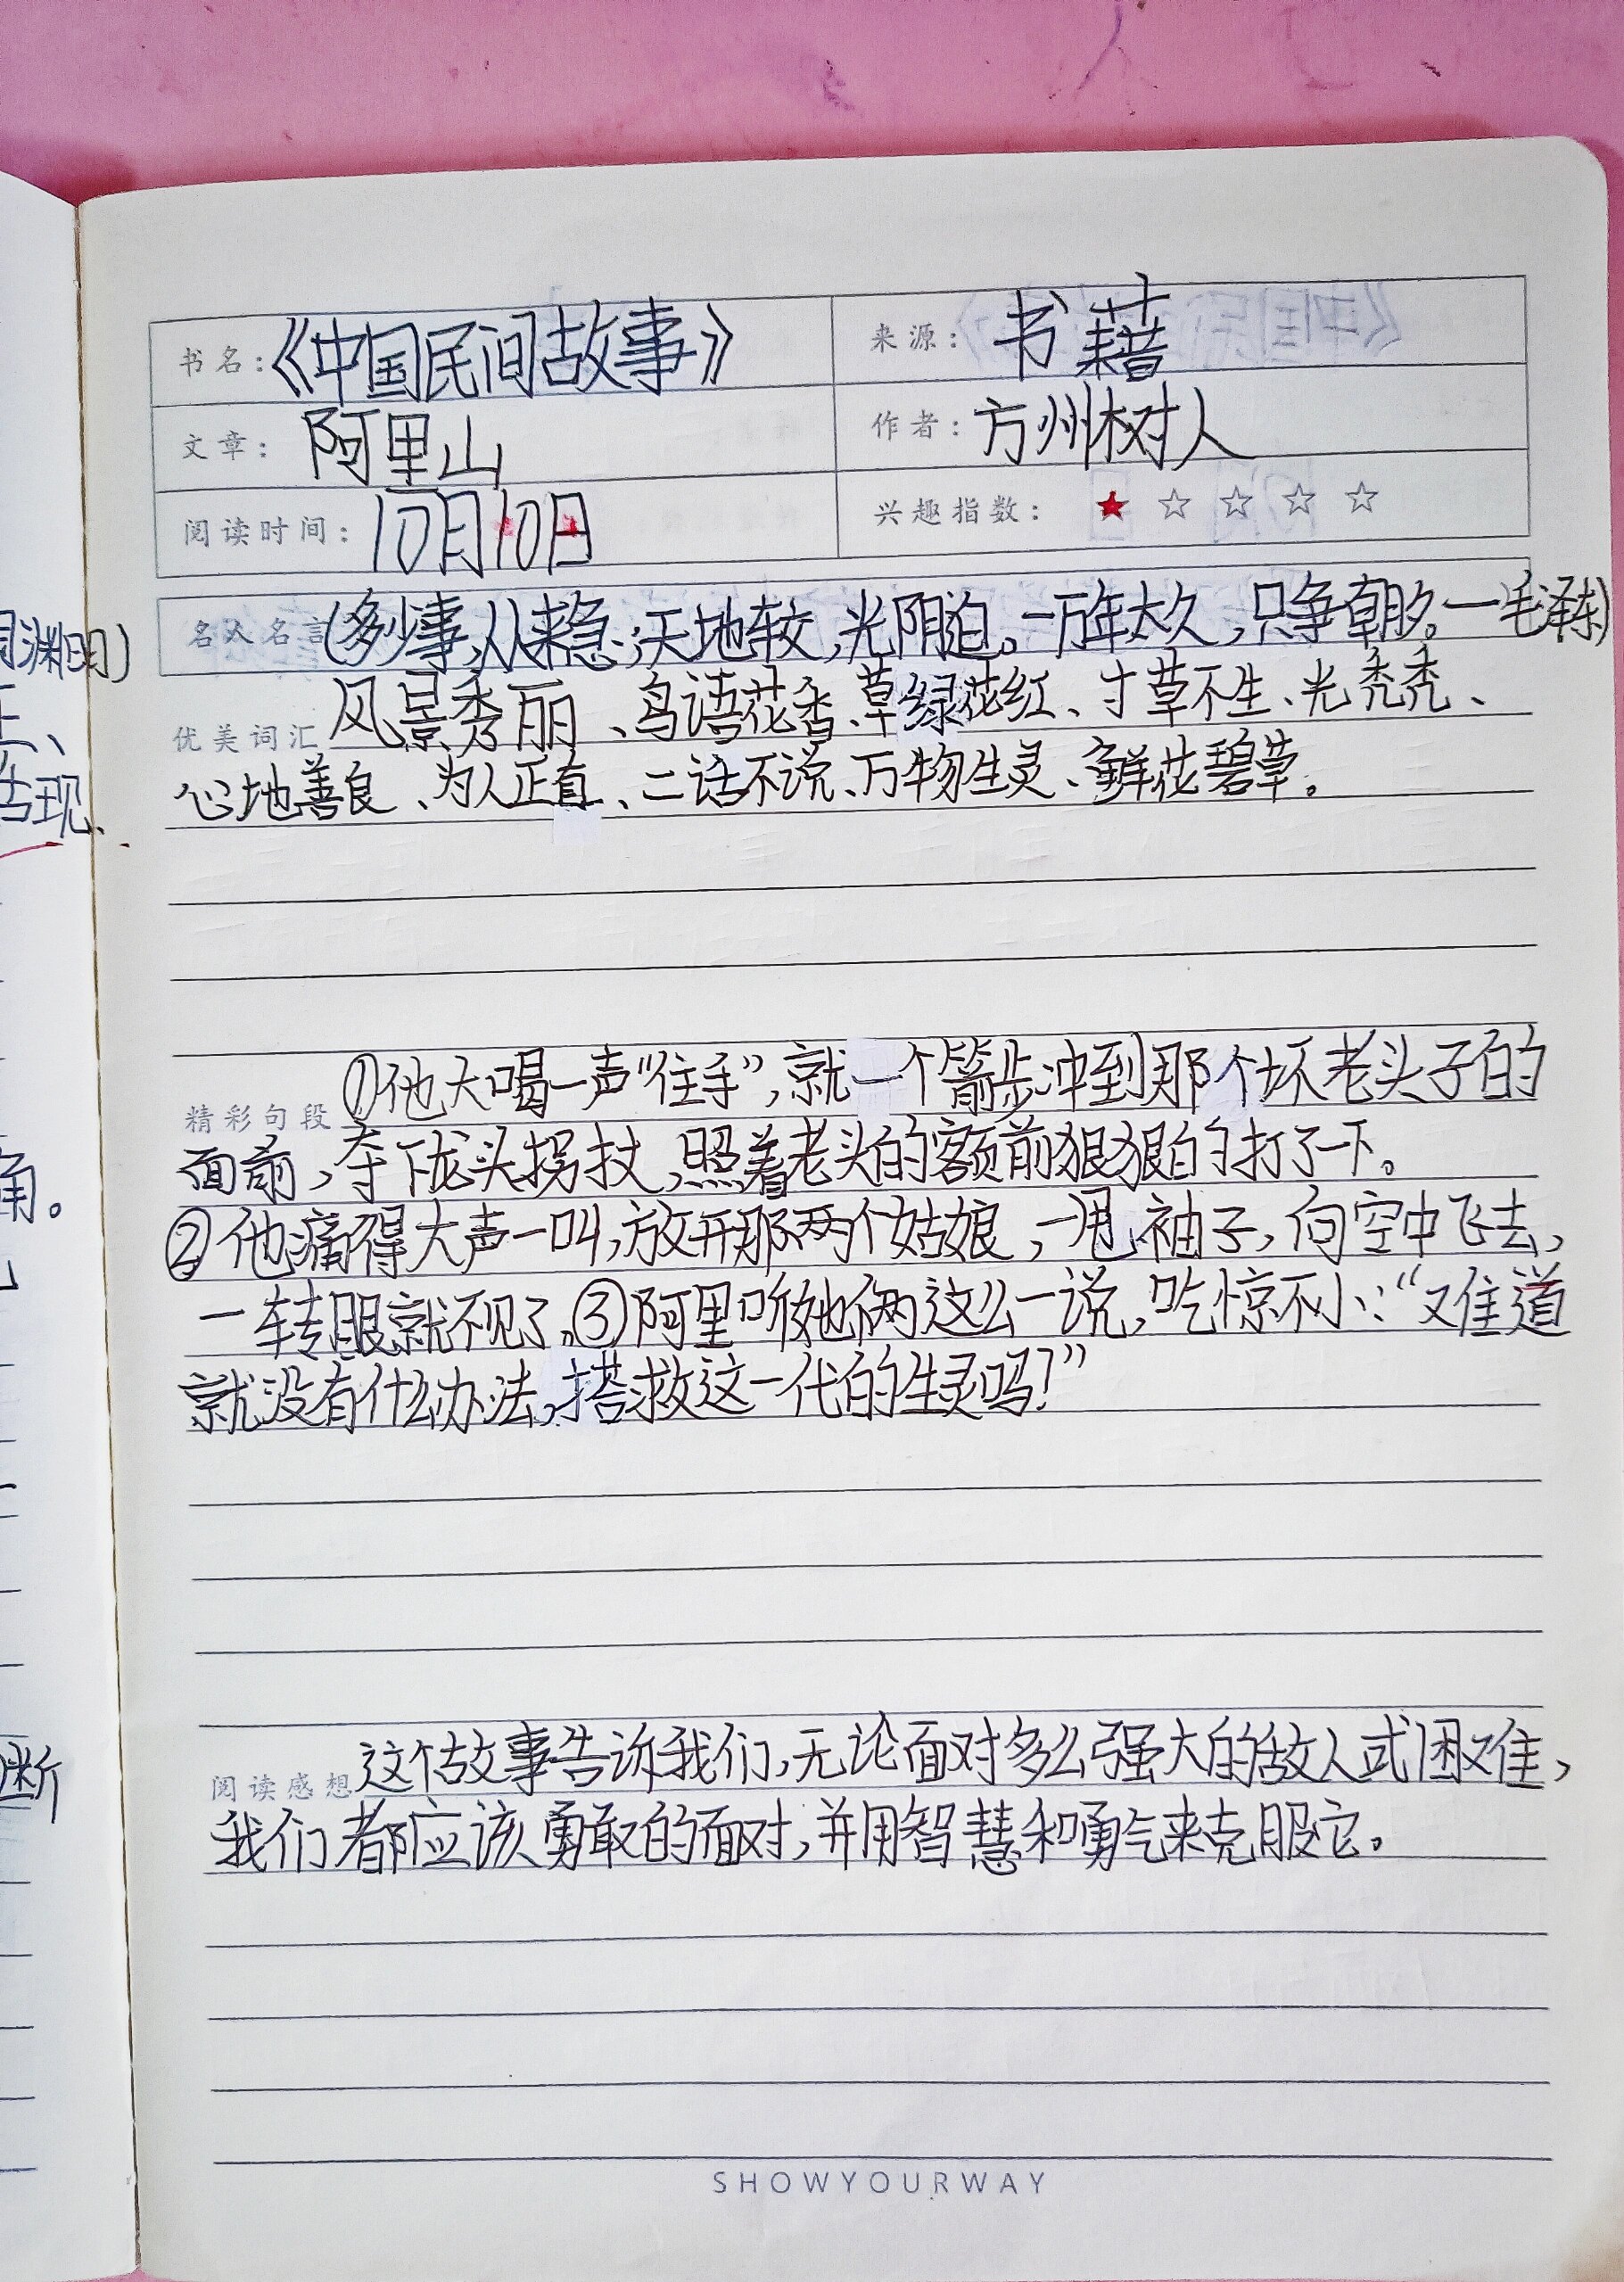 书名:《中国民间故事》 来源: 书籍
文章: 阿里山 作者: 方州树人
阅读时间: 10月10日 兴趣指数: ★☆☆☆☆
名人名言(多少事,从来急;天地转,光阴迫。一万年太久,只争朝夕。一毛泽东)
风景秀丽、鸟语花香、草绿花红、寸草不生、光秃秃、
优美词汇
心地善良、为人正直、二话不说、万物生灵、鲜花碧草。
①他大喝一声“住手”,就一个箭步冲到那个坏老头子的
精彩句段
面前,夺下龙头拐杖,照着老头的额前狠狠的打了一下。
②他痛得大声一叫,放开那两个姑娘,一甩袖子,向空中飞去,
一转眼就不见了。③阿里听她俩这么一说,吃惊不小:“难道
就没有什么办法,搭救这一代的生灵吗!”
这个故事告诉我们,无论面对多么强大的敌人或困难,
阅读感想
我们都应该勇敢的面对,并用智慧和勇气来克服它。
SHOWYOURWAY